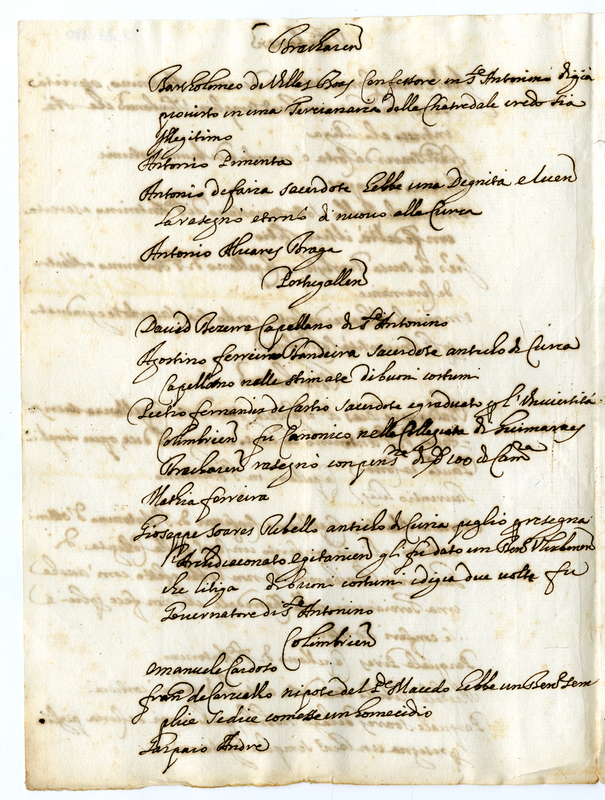 Bracharen
Bartholomeo de Villas Boas Confessore in S.to Antonino di già
provisto in una Tercianaria della Chatredale credo sia
Illegitimo
Antonio Pimenta
Antonio de faria sacerdote hebbe una Degnità e
la rasegnò e tornò di nuovo alla Curia
Antonio Alvares Braga
Portugallen
David Bezerra Capellano di S.to Antonino
Agostino ferreira Bandeira sacerdote anticho di Curia
Capellano nelle stimate di buoni costumi
Pietro fernandes de Castro sacerdote e graduato per l'Universita
Colimbrien fu Canonico nella Collegiata di Guimaraes
Bracharen rasegnò con pens.e di 100 di Cam.ra
Mathia ferreira
Gioseppe Soares Ribello anticho di Curia pigliò per resegna
l'Archidiaconato egitanien gli fu dato un Ben.o
che litiga di buoni costumi e di già due volte fu
Governatore di S.to Antonino
Colimbrien
Emanuele Cardoso
fran.co de Carvallo nipote del P.e Macedo hebbe un Ben.o sem
plice si dice comesse un homecidio
Gaspaio Andre